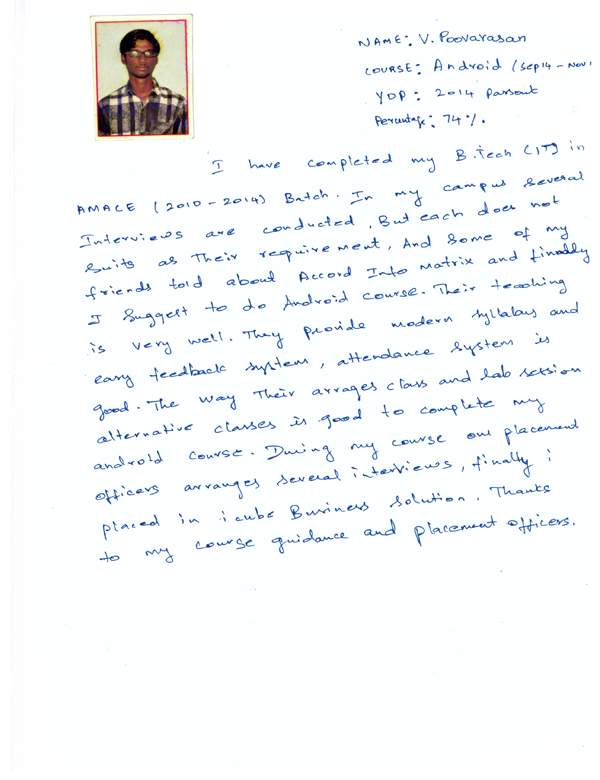 NAME: V. Poovarasan
COURSE: Android (Sep14 - Nov
YOP: 2014 Passout
Percentage: 74%.
I have completed my B.Tech (IT) in
AMACE (2010 - 2014) Batch. In my campus several
Interviews are conducted, But each does not
suits as Their requirement, And some of my
friends told about Accord Info Matrix and finally
I suggest to do Android course. Their teaching
is very well. They provide modern syllabus and
easy feedback system, attendance system is
good. The way Their arrages class and lab session
alternative classes is good to complete my
android course. During my course our placement
officers arranges several interviews, finally i
placed in i cube Business solution. Thanks
to my course guidance and placement officers.